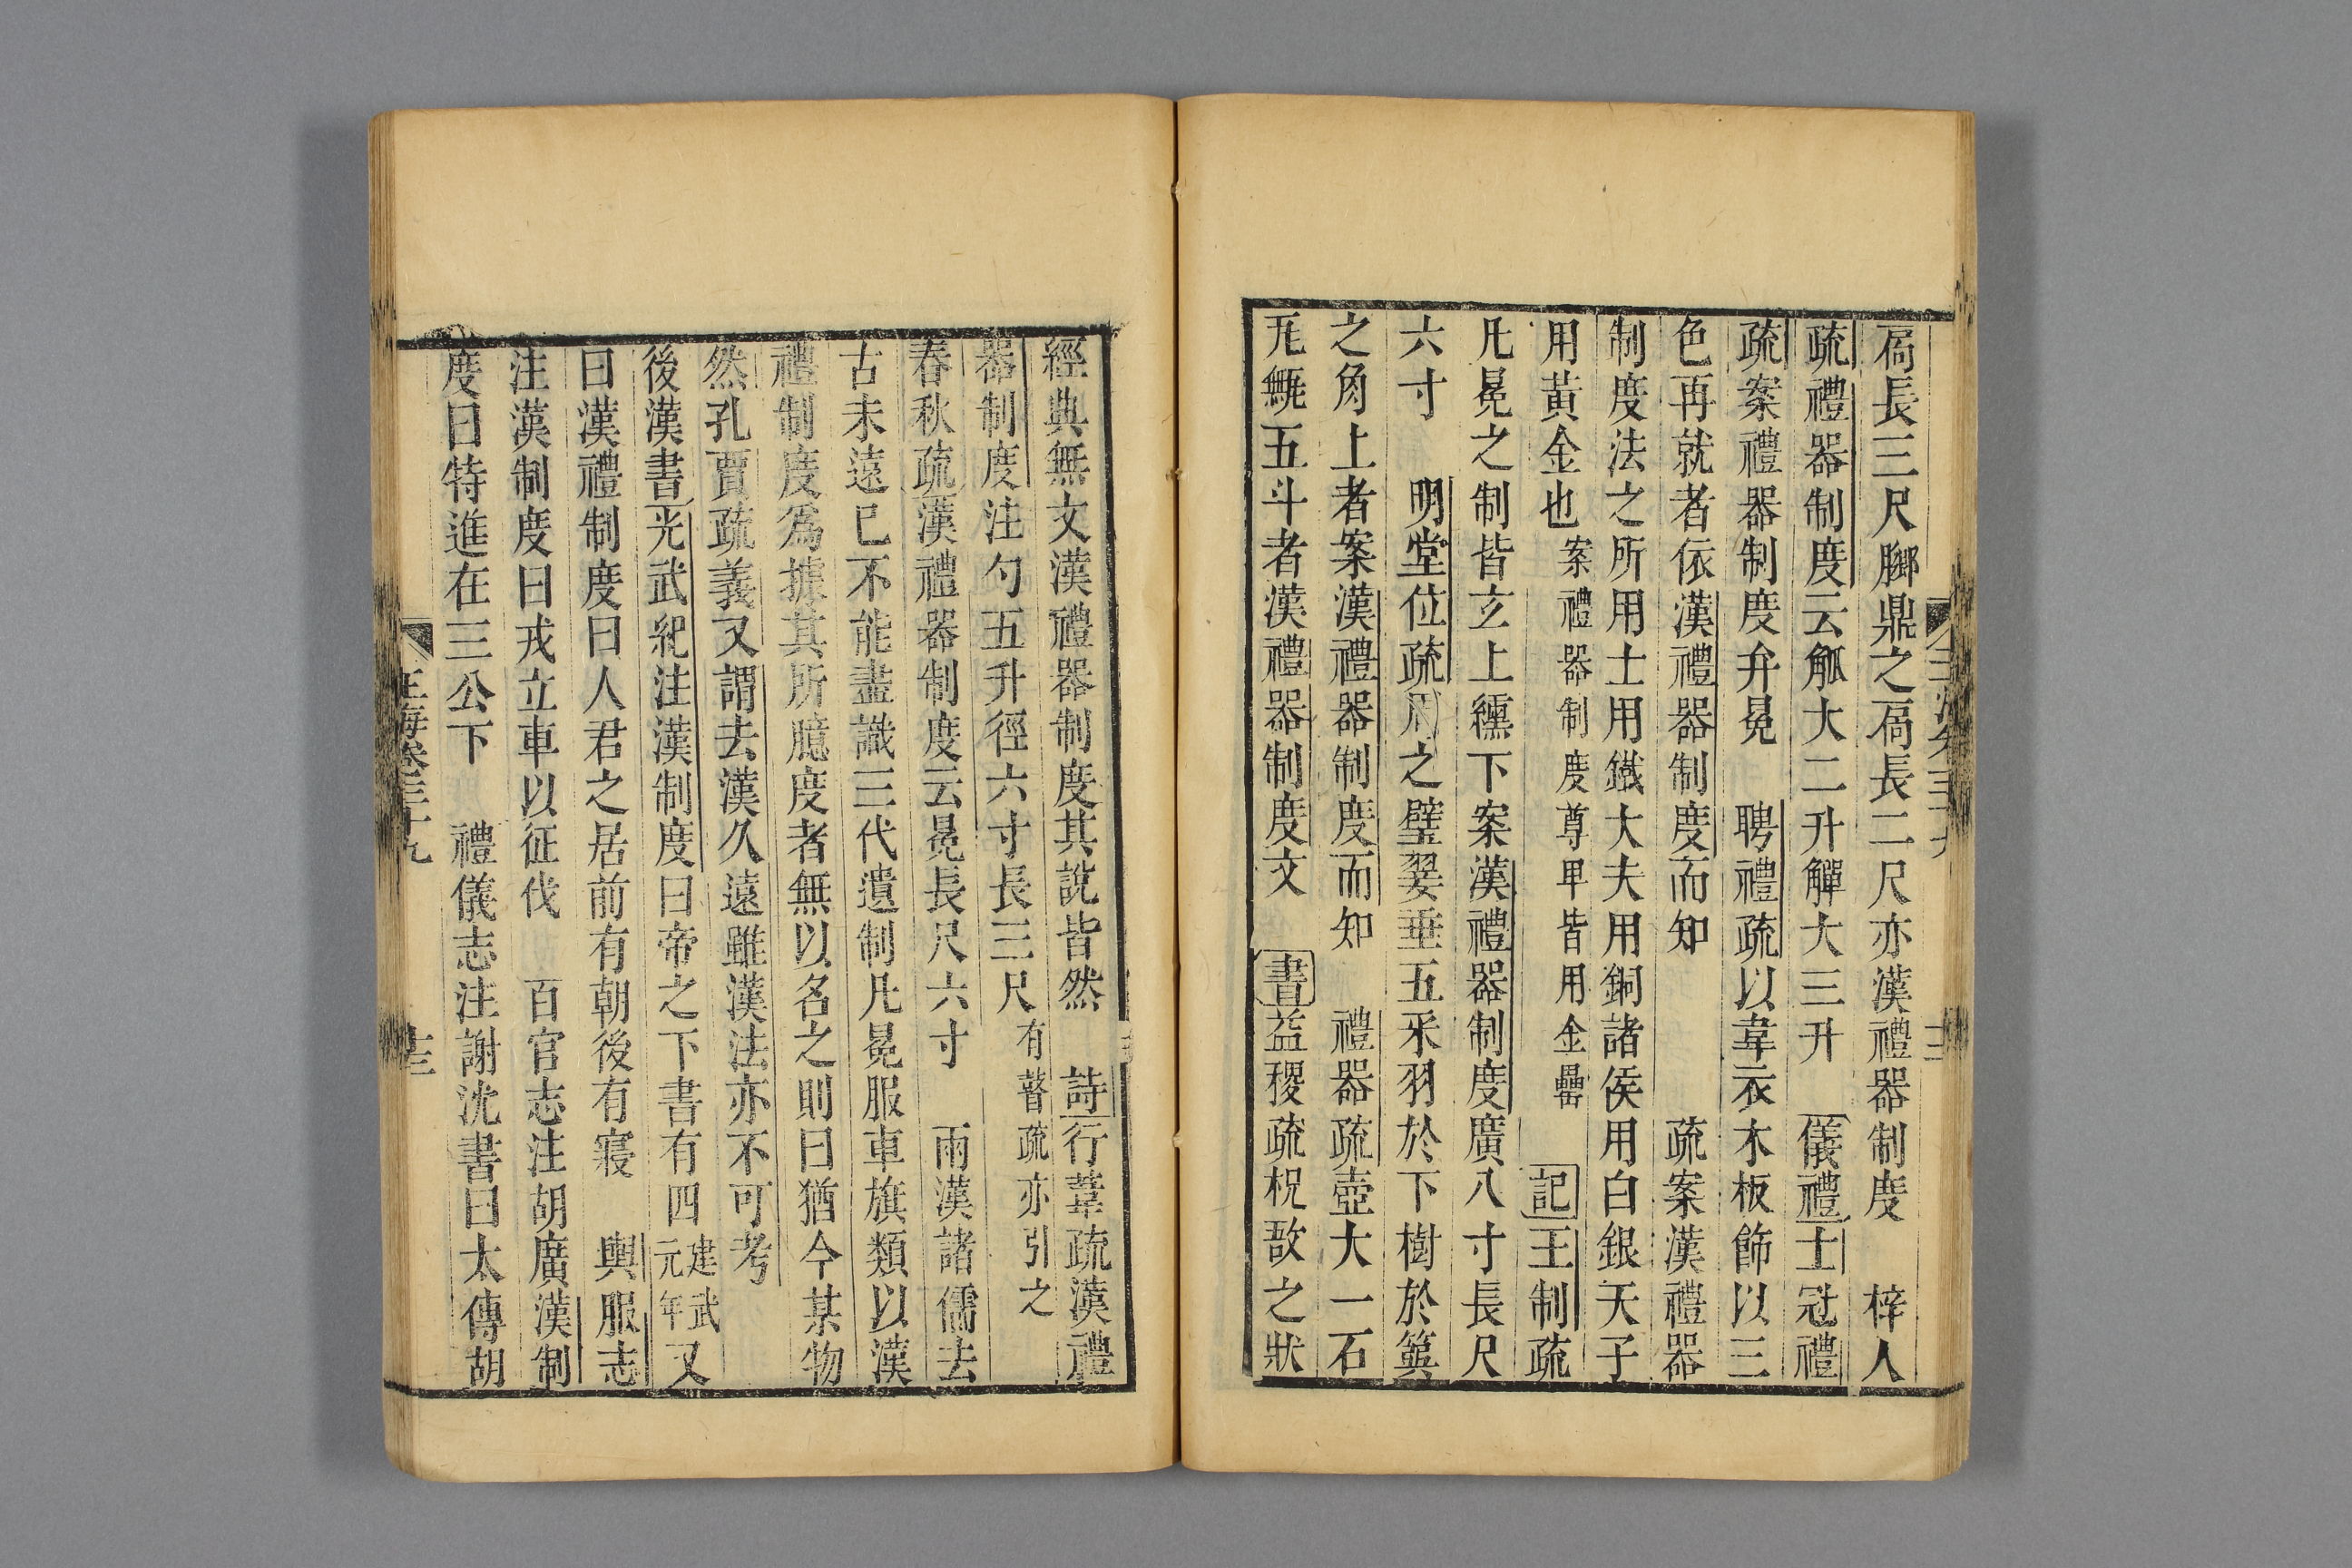 扃長三尺腳鼎之扃長二尺亦漢禮器制度　梓人
疏禮器制度云觚大二升觶大三升　儀禮士冠禮
疏案禮器制度弁冕　聘禮疏以韋衣木板飾以三
色再就者依漢禮器制度而知　疏案漢禮器
制度法之所用士用鐵大夫用銅諸侯用白銀天子
用黃金也案禮器制度尊卑皆用金罍　記王制疏
凡冕之制皆玄上纁下案漢禮器制度廣八寸長尺
六寸　明堂位疏周之璧翣垂五采羽於下樹於簨
之角上者案漢禮器制度而知　禮器疏壺大一石
瓦甒五斗者漢禮器制度文　書益稷疏柷敔之狀
經典無文漢禮器制度其說皆然　詩行葦疏漢禮
器制度注勺五升徑六寸長三尺有瞽疏亦引之
春秋疏漢禮器制度云冕長尺六寸　兩漢諸儒去
古未遠已不能盡識三代遺制凡冕服車旗類以漢
禮制度爲據其所臆度者無以名之則曰猶今某物
然孔賈疏義又謂去漢久遠雖漢法亦不可考
後漢書光武紀注漢制度曰帝之下書有四建武元年又
曰漢禮制度曰人君之居前有朝後有寢　輿服志
注漢制度曰戎立車以征伐　百官志注胡廣漢制
度曰特進在三公下　禮儀志注謝沈書曰太傅胡
玉海卷三十九
十三